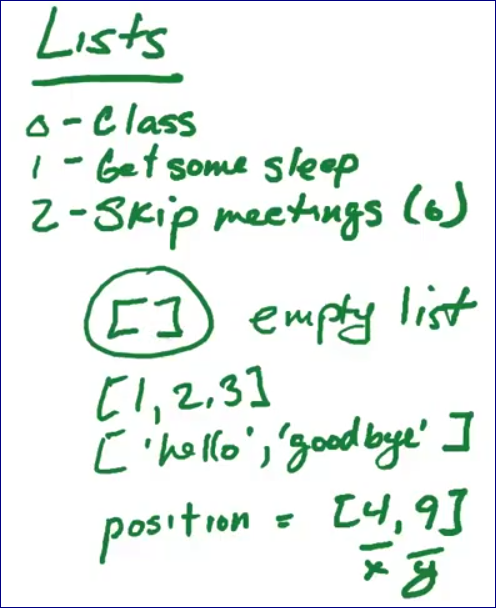 Lists
0 - Class
1 - Get some sleep
2 - Skip meetings (6)
[] empty list
[1, 2, 3]
['hello', 'goodbye']
position = [4, 9]
x y